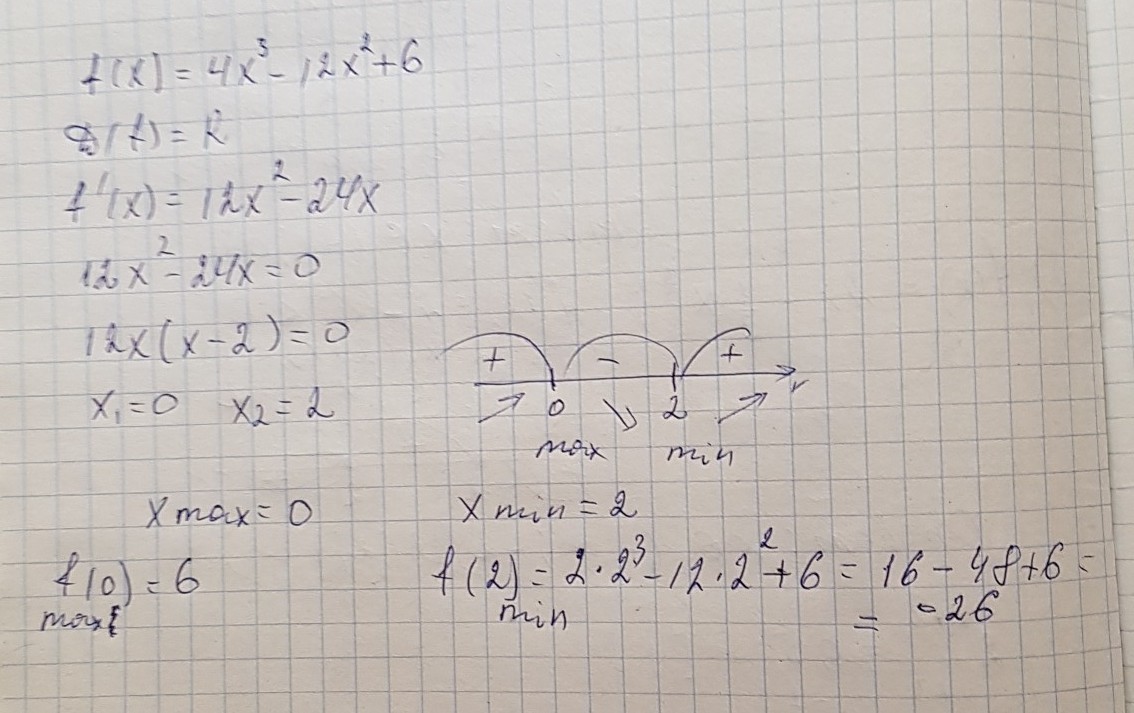 f(x) = 4x³ - 12x² + 6
D(f) = R
f'(x) = 12x² - 24x
12x² - 24x = 0
12x(x - 2) = 0
+ - +
x₁ = 0 x₂ = 2
0 2 x
max min
x max = 0 x min = 2
f(0) = 6 f(2) = 2·2³ - 12·2² + 6 = 16 - 48 + 6 =
max min = -26